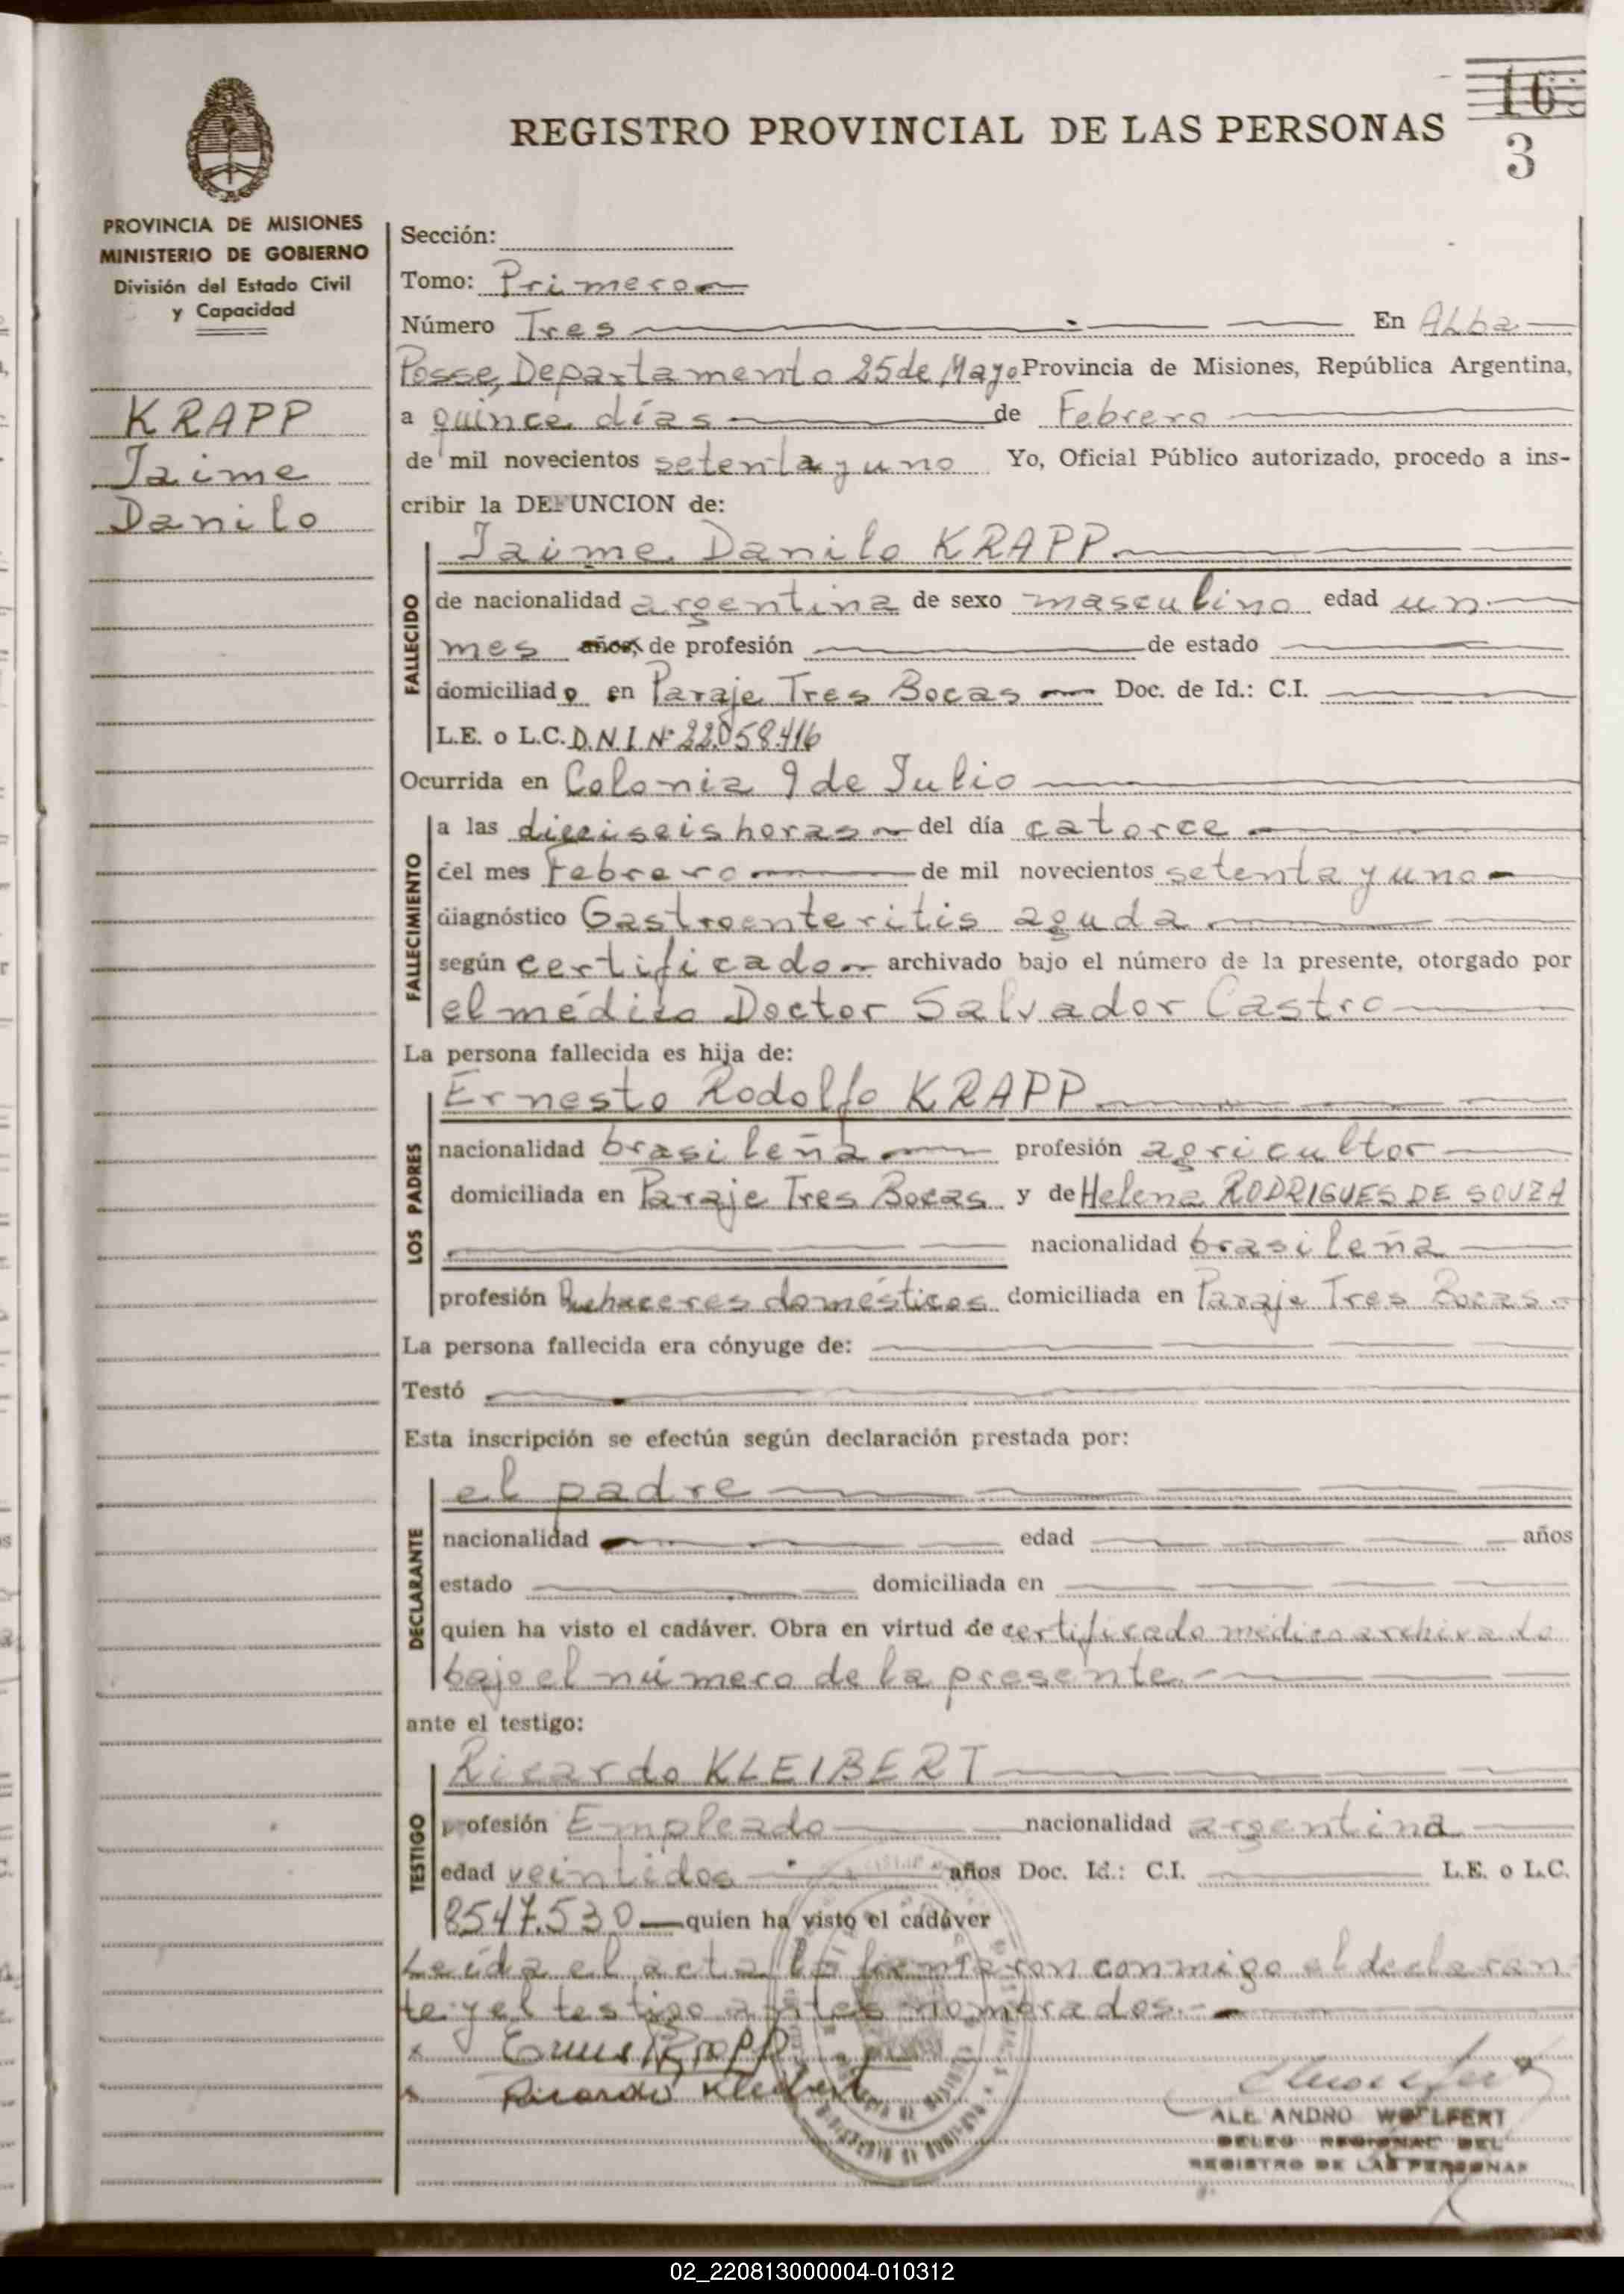 REGISTRO PROVINCIAL DE LAS PERSONAS
16
3
PROVINCIA DE MISIONES
MINISTERIO DE GOBIERNO
División del Estado Civil
y Capacidad
KRAPP
Jaime
Danilo
Sección:
Tomo: Primero
Número Tres En Alba
Posse, Departamento 25 de Mayo Provincia de Misiones, República Argentina,
a quince días de Febrero
de mil novecientos setenta y uno Yo, Oficial Público autorizado, procedo a ins-
cribir la DEFUNCION de:
Jaime Danilo KRAPP
FALLECIDO
de nacionalidad argentina de sexo masculino edad un
mes años de profesión de estado
domiciliado en Paraje Tres Bocas Doc. de Id.: C.I.
L.E. o L.C. D.N.I. Nº 22.058.416
Ocurrida en Colonia 9 de Julio
FALLECIMIENTO
a las dieciseis horas del día catorce
del mes Febrero de mil novecientos setenta y uno
diagnóstico Gastroenteritis aguda
según certificado archivado bajo el número de la presente, otorgado por
el médico Doctor Salvador Castro
La persona fallecida es hija de:
LOS PADRES
Ernesto Rodolfo KRAPP
nacionalidad brasileña profesión agricultor
domiciliada en Paraje Tres Bocas y de Helena RODRIGUES DE SOUZA
nacionalidad brasileña
profesión Quehaceres domésticos domiciliada en Paraje Tres Bocas
La persona fallecida era cónyuge de:
Testó
Esta inscripción se efectúa según declaración prestada por:
DECLARANTE
el padre
nacionalidad edad años
estado domiciliada en
quien ha visto el cadáver. Obra en virtud de certificado médico archivado
bajo el número de la presente.-
ante el testigo:
TESTIGO
Ricardo KLEIBERT
profesión Empleado nacionalidad argentina
edad veintidos años Doc. Id.: C.I. L.E. o L.C.
8547.530 quien ha visto el cadáver
Leída el acta la firmaron conmigo el declaran
te y el testigo antes nombrados.-
x Krapp
x Ricardo Kleibert
ALEJANDRO WOELFERT
DELEG REGIONAL DEL
REGISTRO DE LAS PERSONAS
02_220813000004-010312